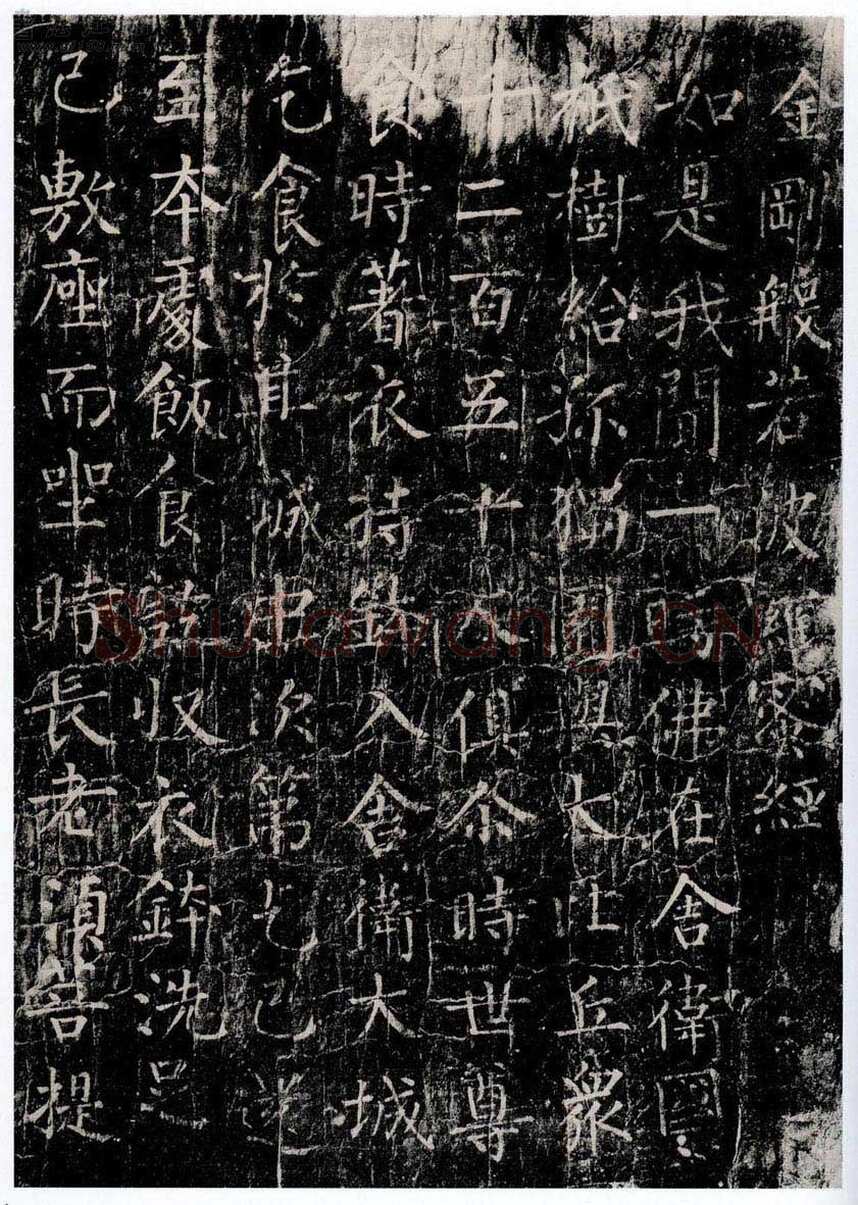 金剛般若波羅蜜經
如是我聞一時佛在舍偉國
祇樹給孤獨園與大比丘眾
千二百五十人俱尒時世尊
食時著衣持鉢入舍衛大城
乞食於其城中次第乞已還
至本處飯食訖收衣鉢洗足
已敷座而坐時長老須菩提
Shufawang.CN